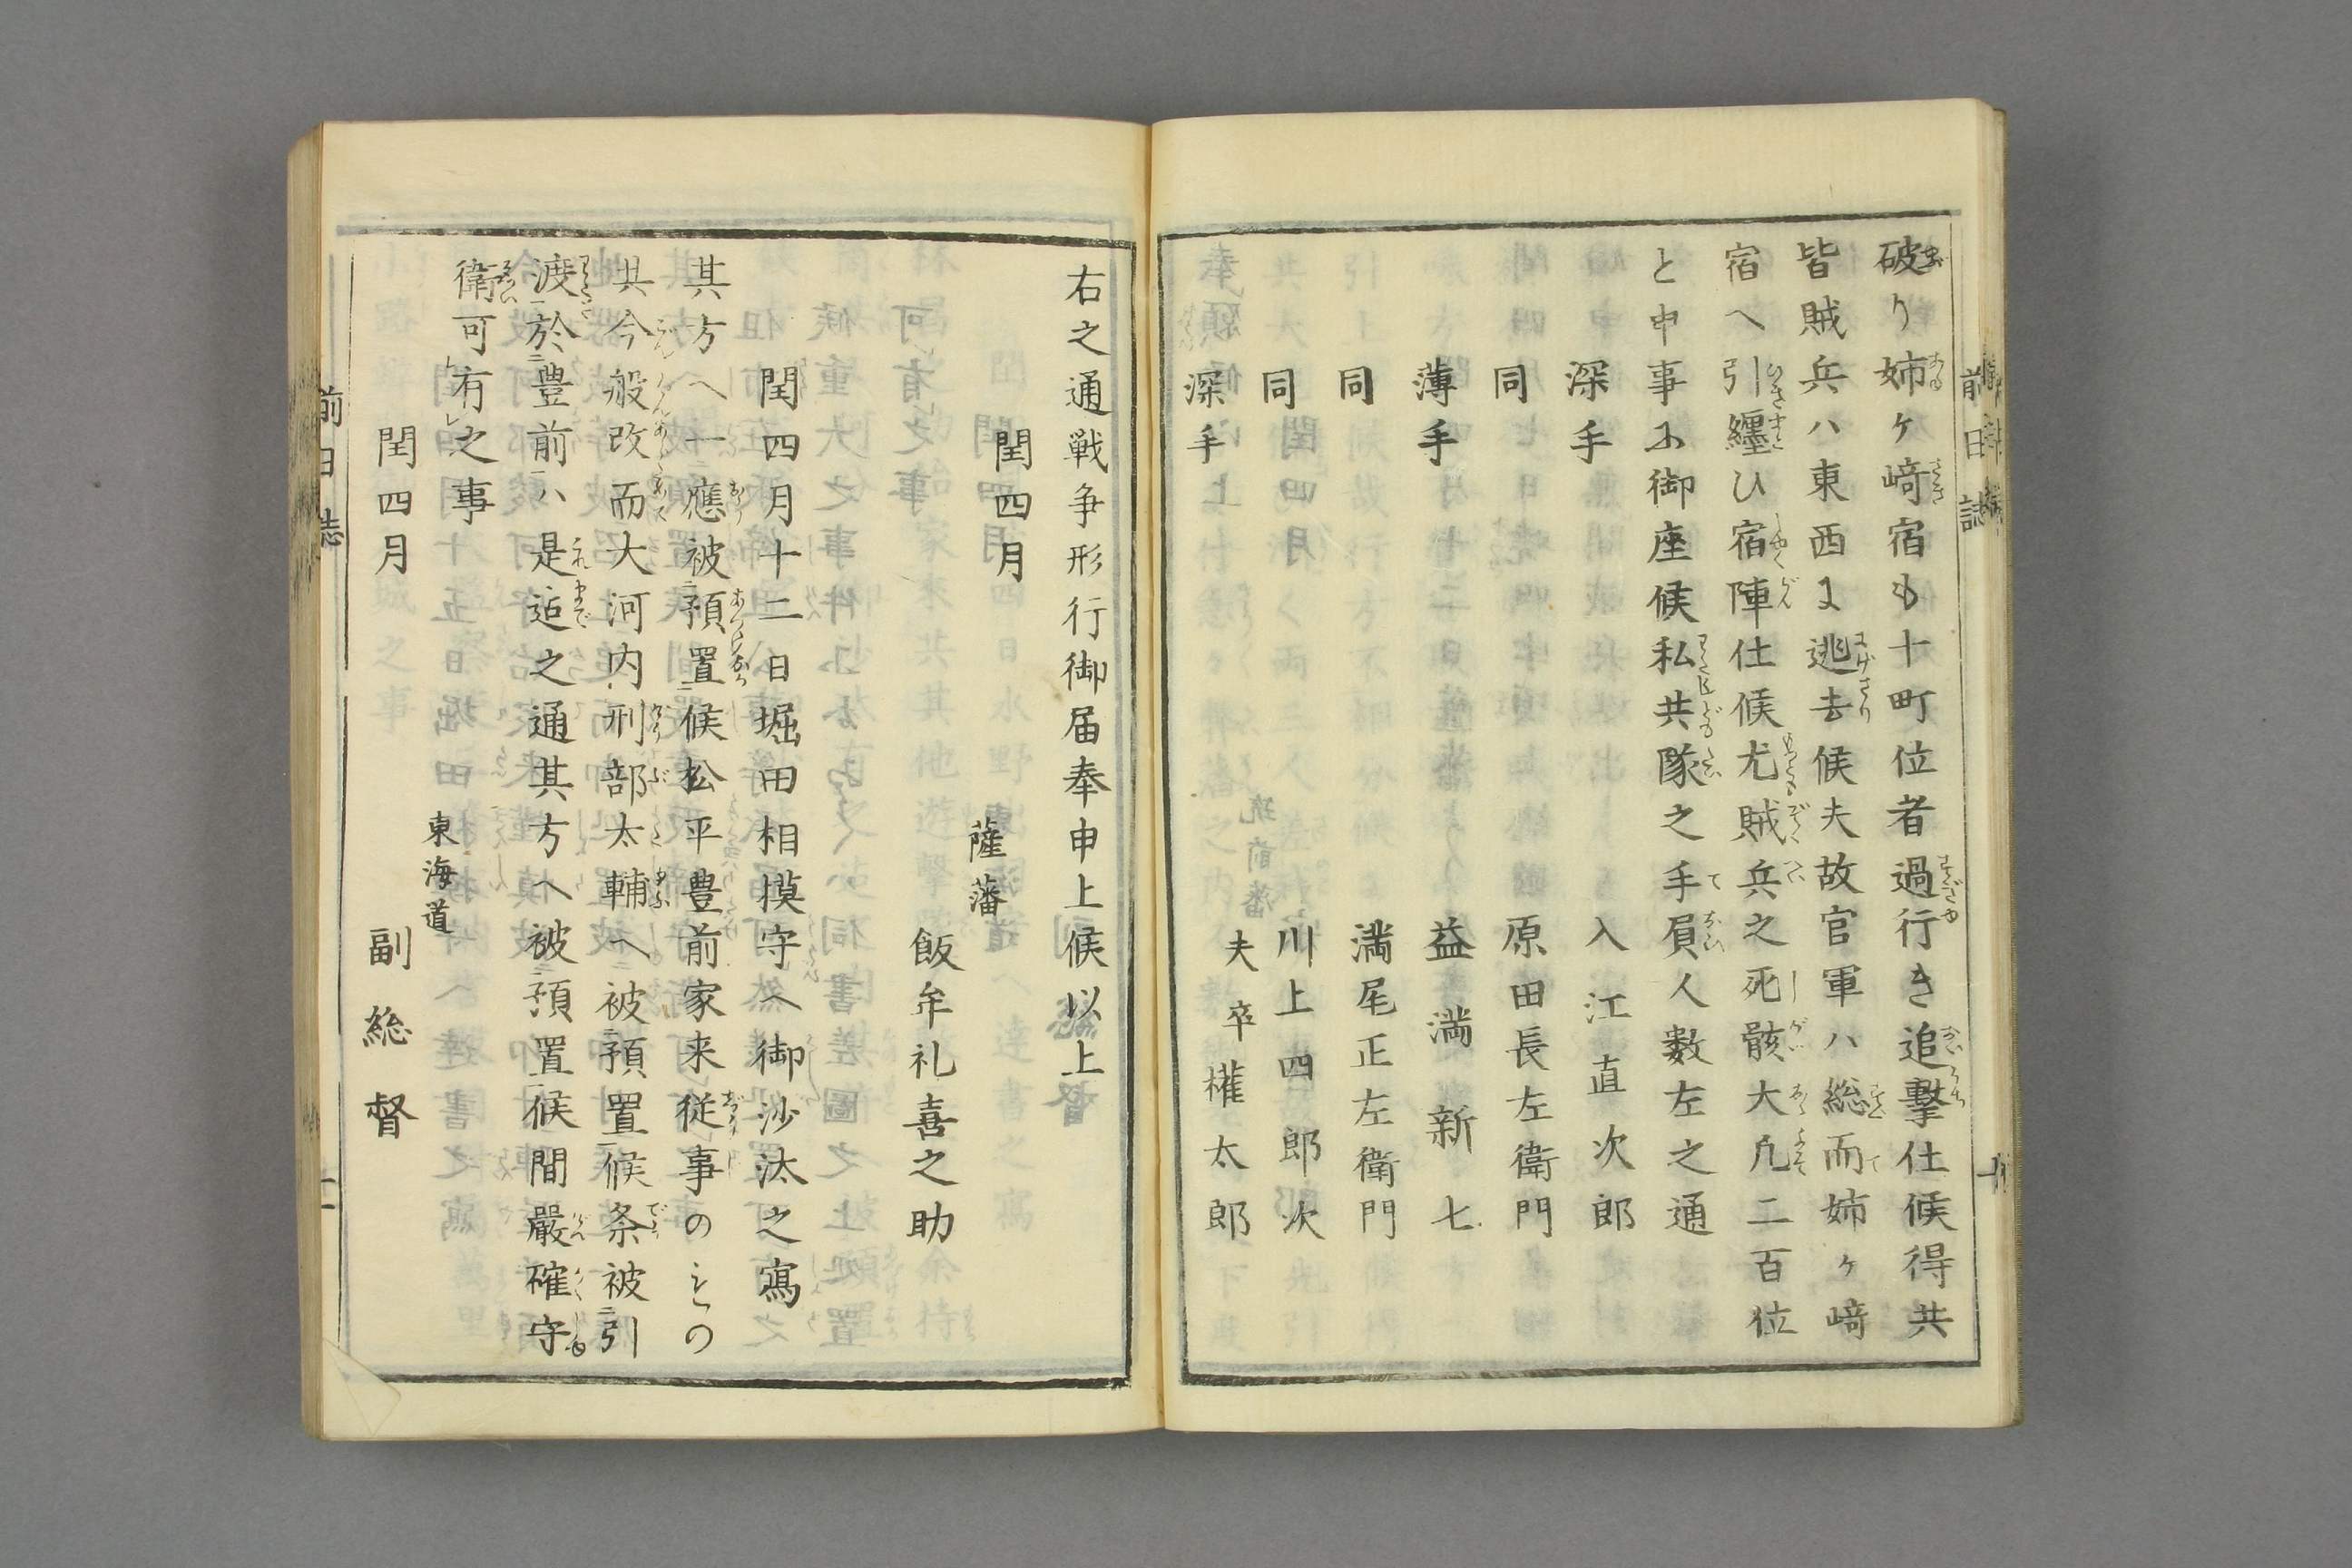 破り姉ヶ﨑宿も十町位者過行き追撃仕候得共
皆賊兵ハ東西に逃去候夫故官軍ハ総而姉ヶ﨑
宿へ引纏ひ宿陣仕候尤賊兵之死骸大凡二百位
と申事ニ御座候私共隊之手屓人数左之通
深手 入江直次郎
同 原田長左衛門
薄手 益満新七
同 満尾正左衛門
同 川上四郎次
深手 夫卒權太郎
右之通戦争形行御届奉申上候以上
閏四月 薩藩
飯牟礼喜之助
閏四月十二日堀田相摸守へ御沙汰之寫
其方へ一應被預置候松平豊前家来従事のミの
共今般改而大河内刑部太輔へ被預置候条被引
渡於豊前ハ是迠之通其方へ被預置候間嚴確守
衛可有之事
閏四月 東海道
副総督
前日誌